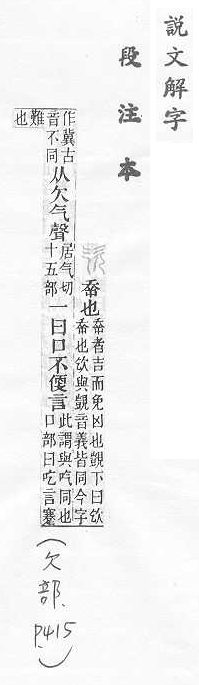 說文解字
段注本
𡴘也𡴘者吉而免凶也覬下曰㰟𡴘也㰟與覬音義皆同今字
作冀古音不同从欠气聲居气切十五部一曰口不便言此謂與吃同也口部曰吃言蹇
難也
(欠部、P.415)